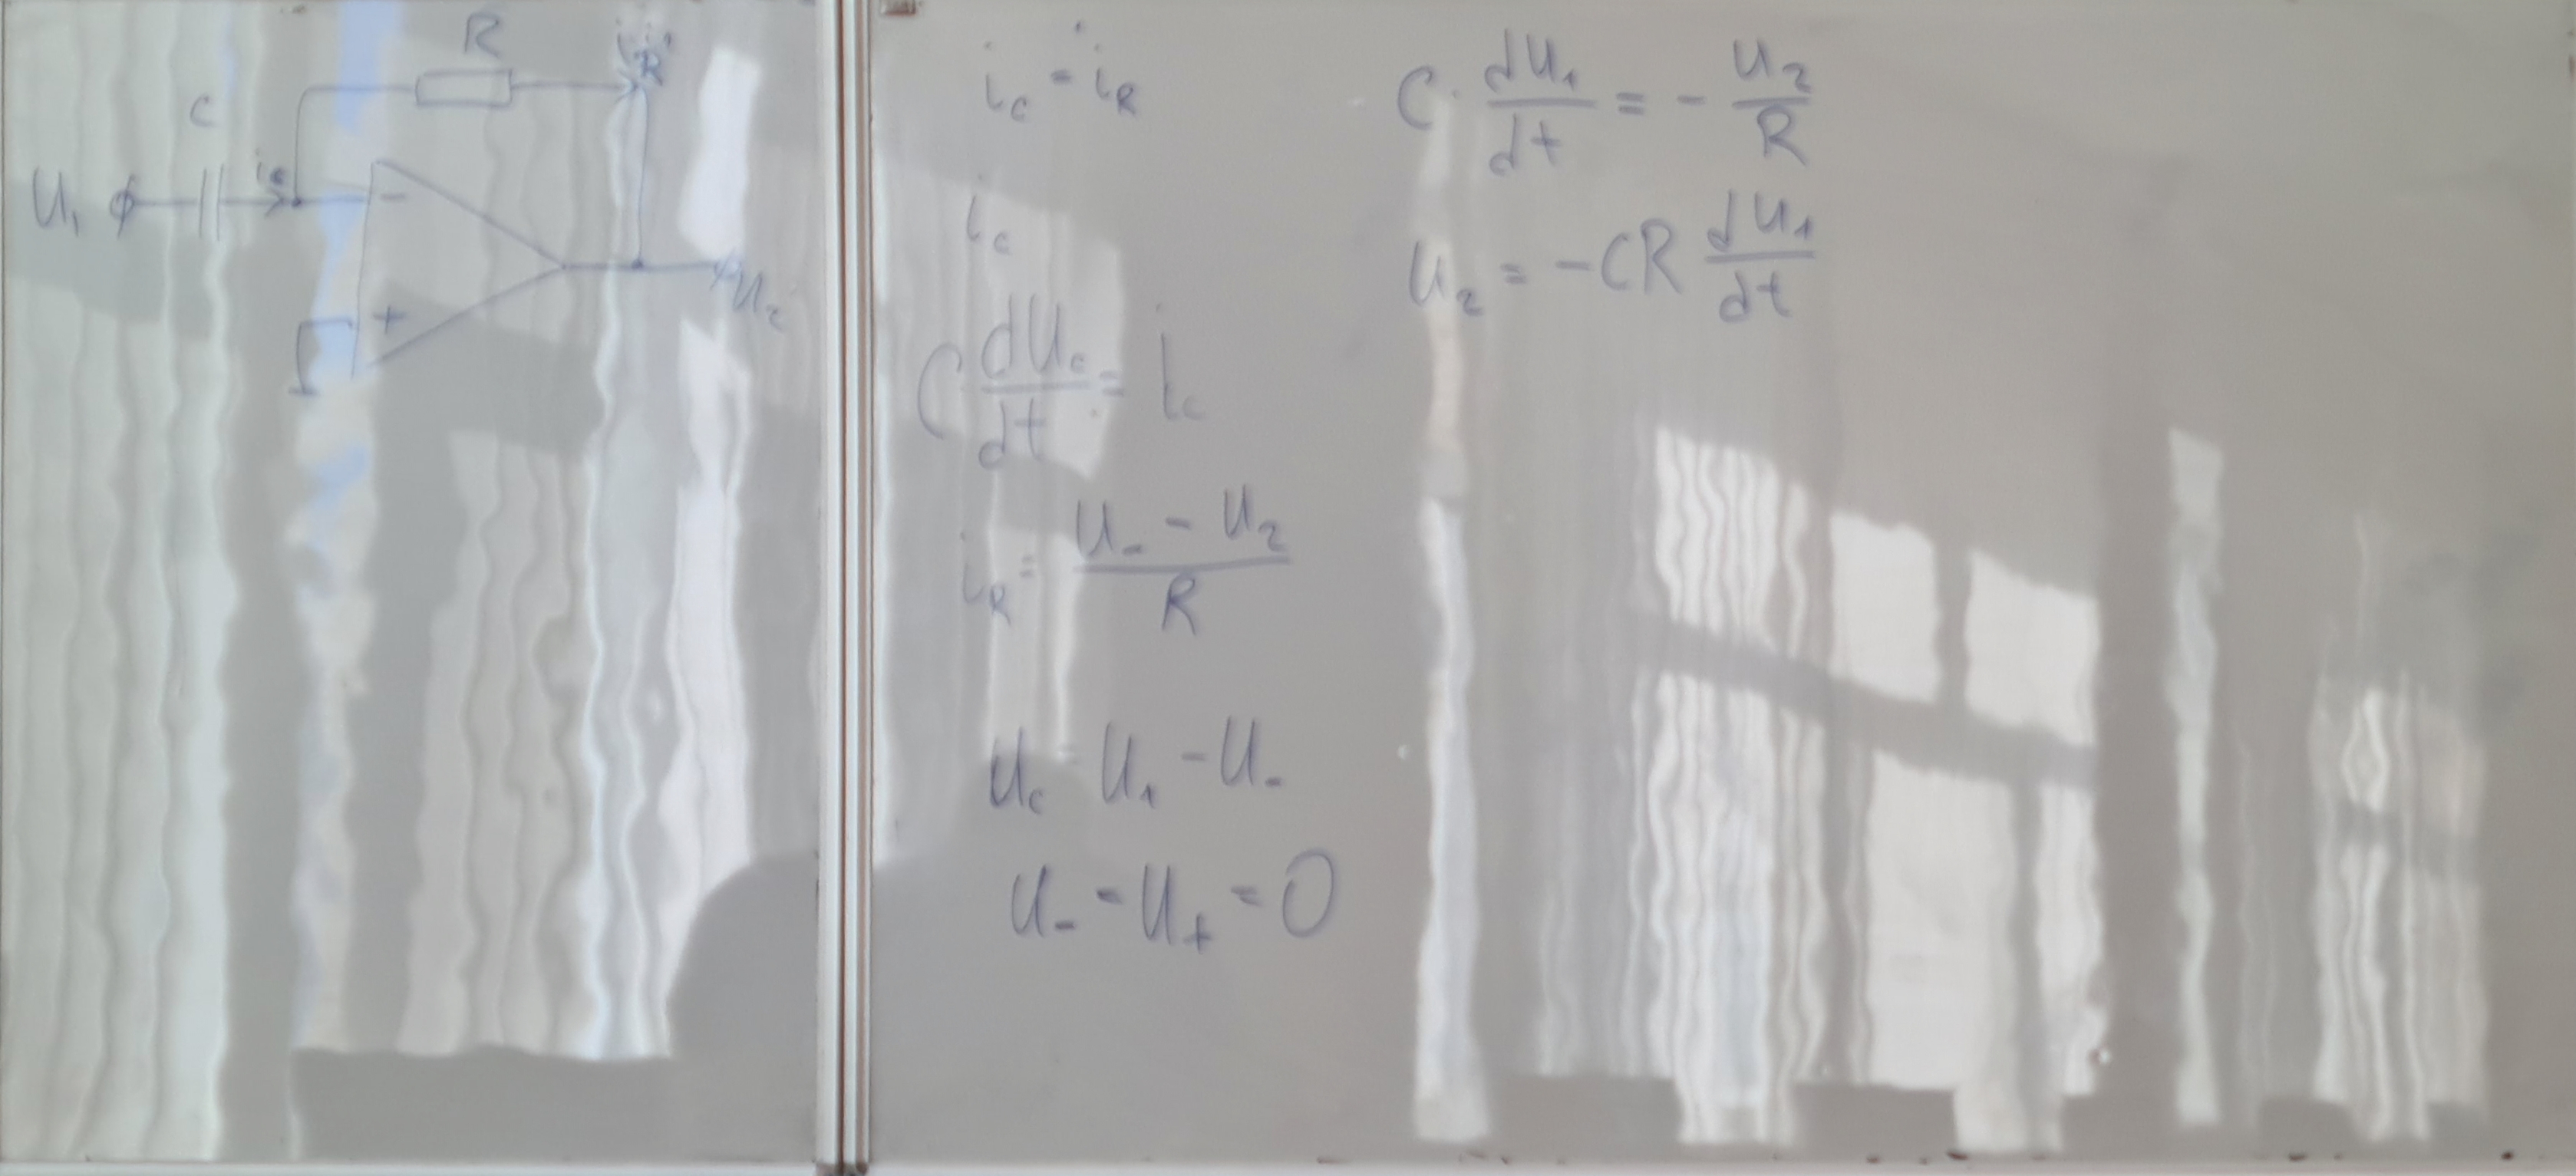 R
i_R
C
i_c
U₁
-
+
U₂
i_c = i_R
i_c
C dU_c/dt = i_c
i_R = (U_- - U₂)/R
U_c = U₁ - U_-
U_- = U_+ = 0
C · dU₁/dt = - U₂/R
U₂ = -CR dU₁/dt